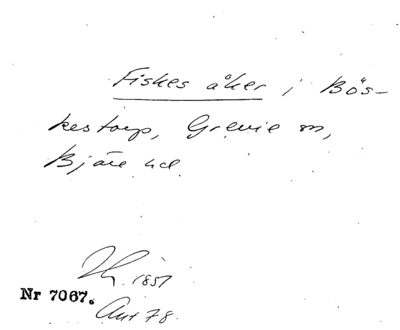 Fiskes åker i Bös-
kestorp, Grevie sn,
Bjäre hd.
1851
Nr 7067.
Ant 78.